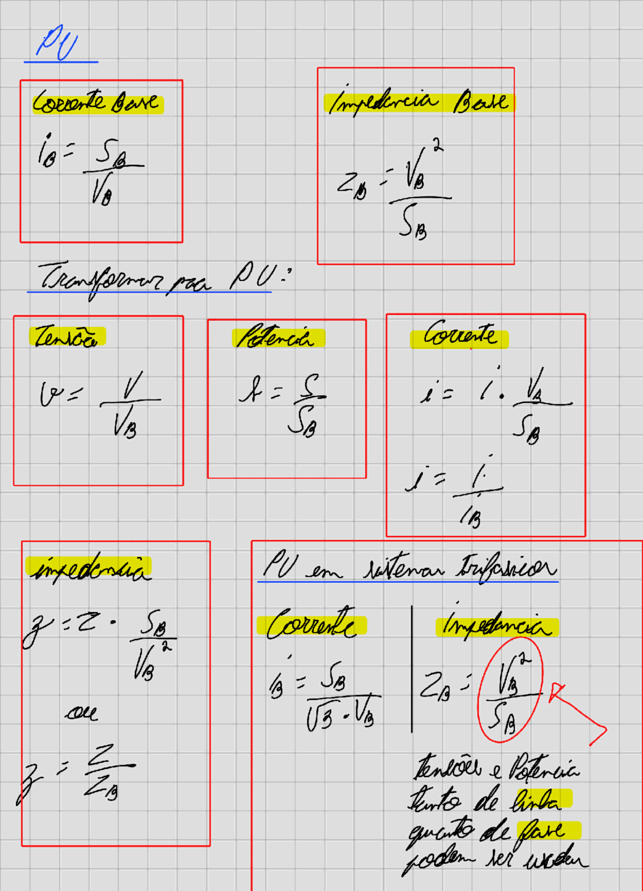 PU
Corrente Base
i_B = S_B / V_B
Impedancia Base
Z_B = V_B^2 / S_B
Transformar para PU:
Tensão
v = V / V_B
Potencia
s = S / S_B
Corrente
i = i · V_B / S_B
i = i / i_B
impedancia
z = Z · S_B / V_B^2
ou
z = Z / Z_B
PU em sistemas trifasicos
Corrente
i_B = S_B / √3 · V_B
Impedancia
Z_B = V_B^2 / S_B
tensões e Potencia
tanto de linha
quanto de fase
podem ser usadas